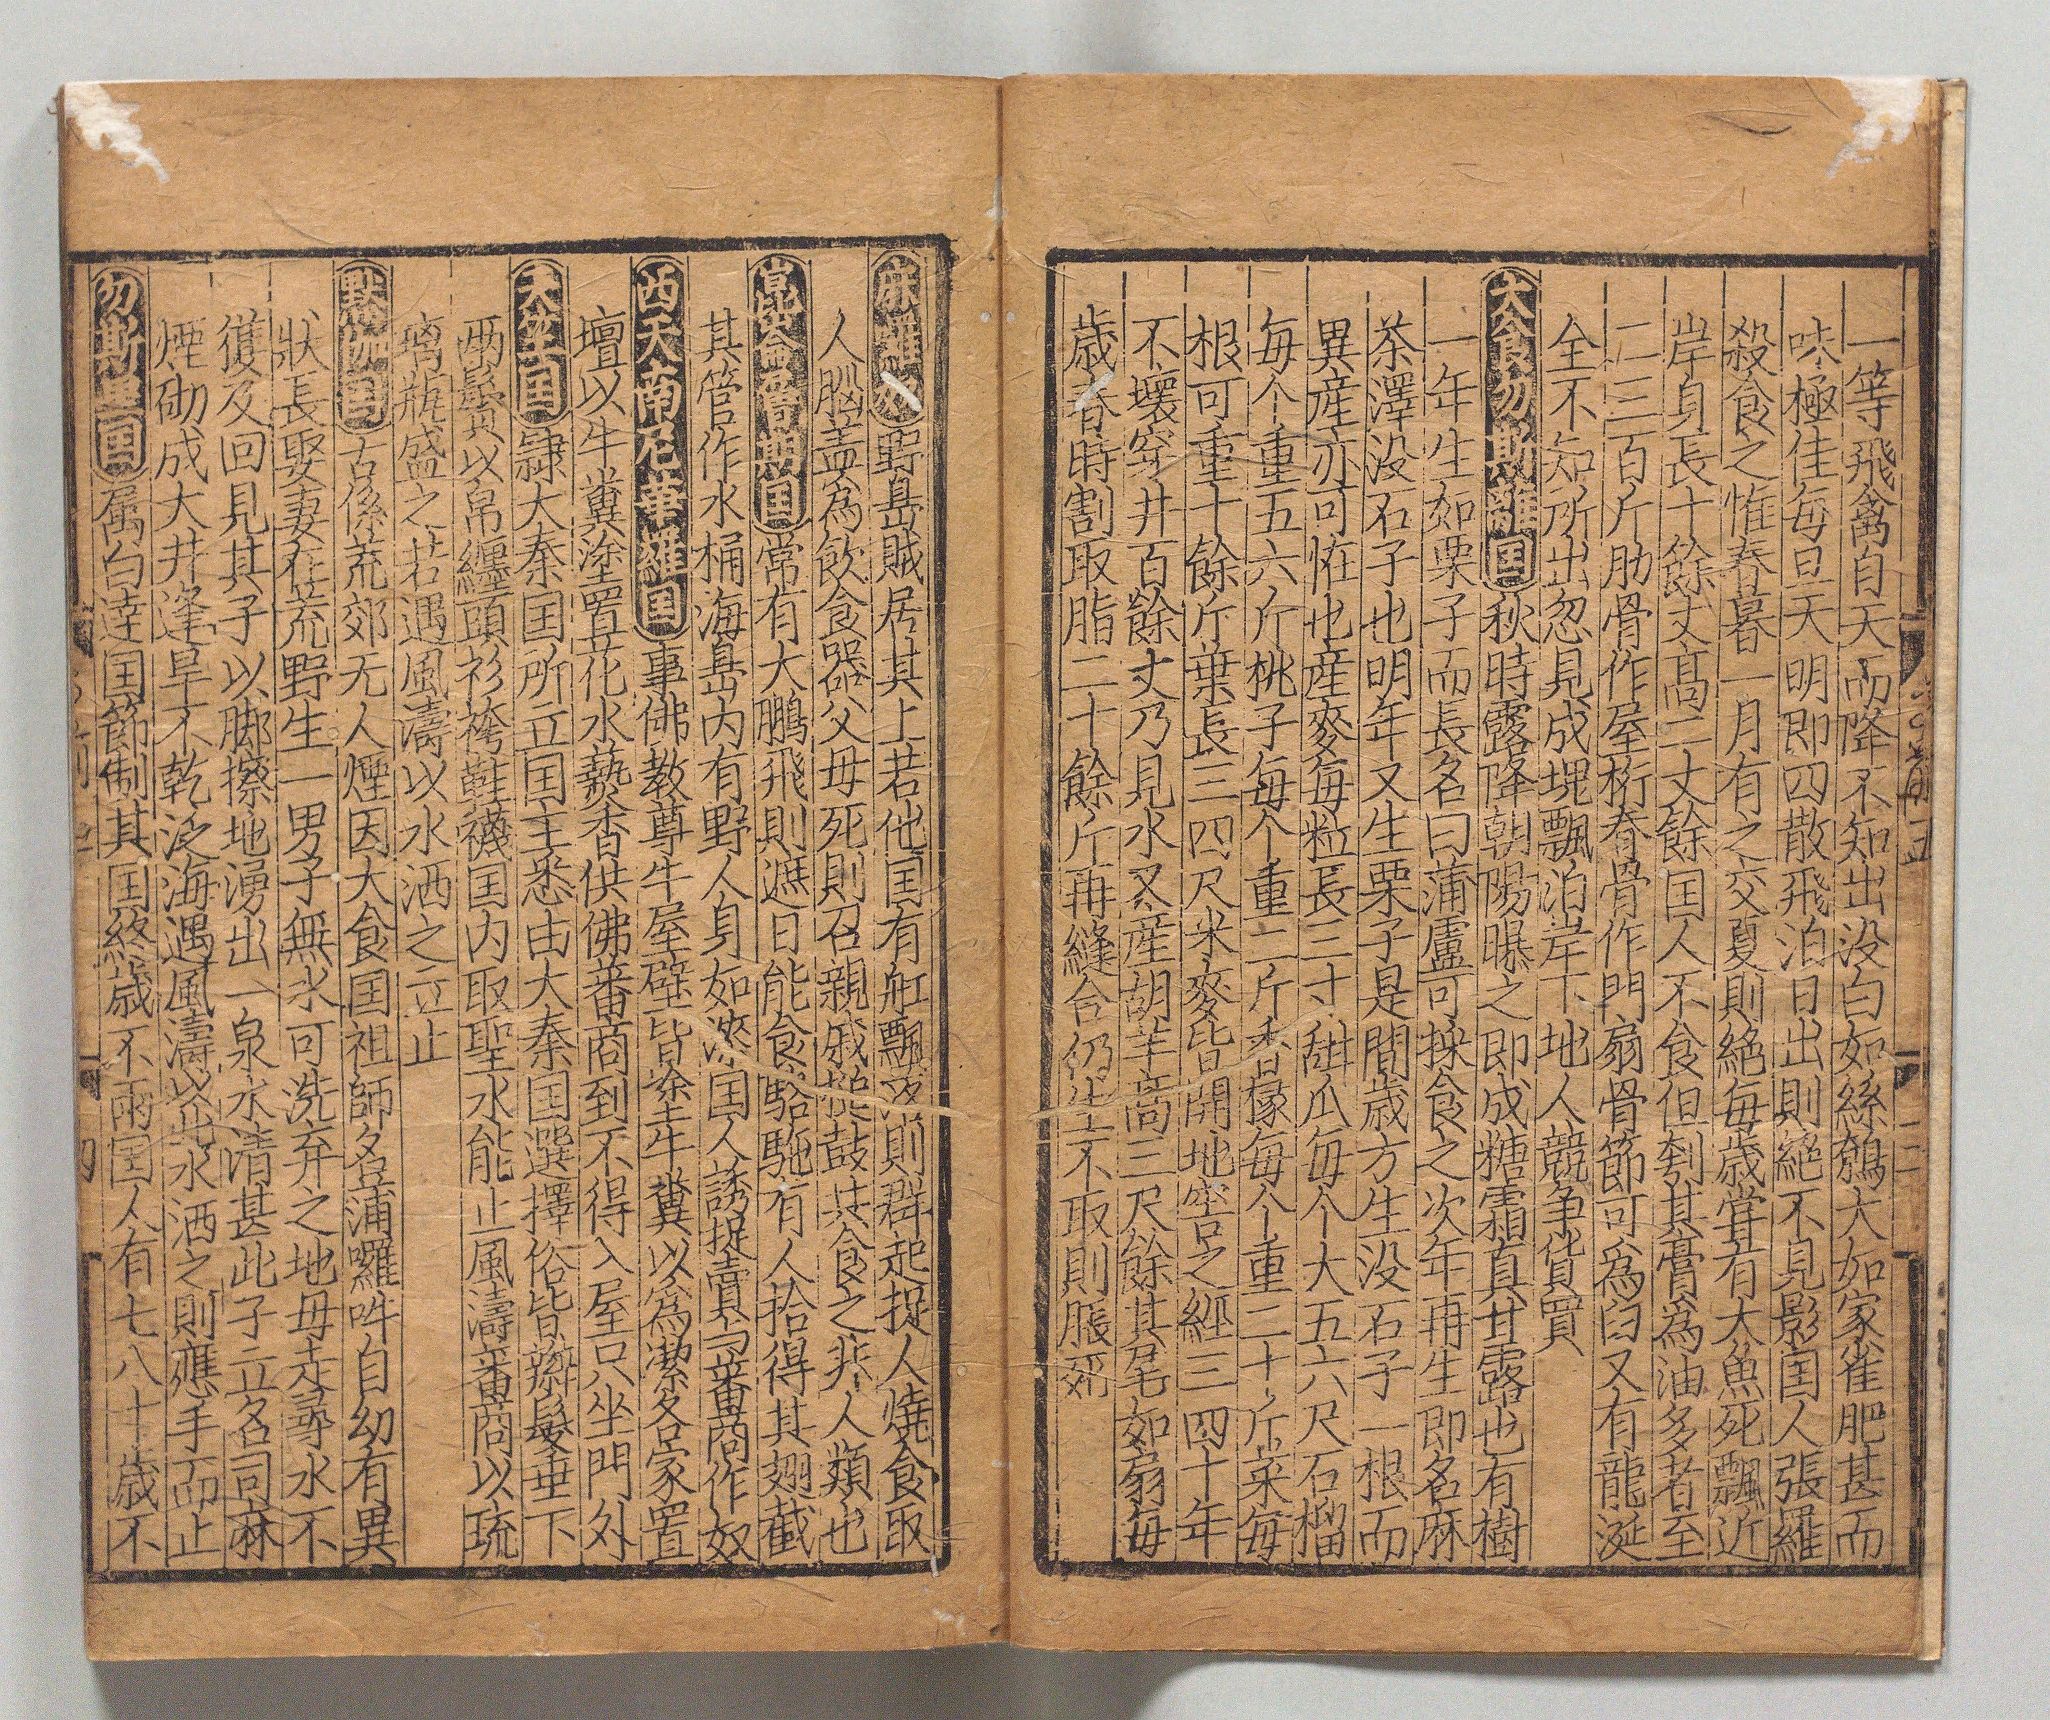 一等飛禽自天而降不知出没白如絲鵪大如家雀肥甚而
味極佳每旦天明即四散飛泊日出則絕不見影囯人張羅
殺食之惟春暮一月有之交夏則絕每歲嘗有大魚死飄近
岸身長十餘丈髙二丈餘囯人不食但刳其膏為油多者至
二三百斤肋骨作屋桁脊骨作門扇骨節可為臼又有龍涎
全不知所出忽見成塊飄泊岸下地人競争貨買
大食勿斯離囯 秋時露降朝陽曝之即成糖霜真甘露也有樹
一年生如栗子而長名曰蒲盧可採食之次年再生即名麻
茶澤没石子也明年又生栗子是間歲方生没石子一根而
異産亦可恠也産麥每粒長三寸甜瓜每个大五六尺石榴
每个重五六斤桃子每个重二斤香櫞每个重二十斤菜每
根可重十餘斤葉長三四尺米麥皆開地窖之經三四十年
不壞穿井百餘丈乃見水又産胡羊髙三尺餘其尾如扇每
歲春時割取脂二十餘斤再縫合仍生不取則脹死
麻離拔 野島賊居其上若他囯有舡飄落則群起捉人燒食取
人腦盖為飲食器父毋死則召親戚撾鼓共食之非人類也
崑崙層期囯 常有大鵬飛則遮日能食駱駞有人拾得其翅截
其管作水桶海島内有野人身如漆囯人誘捉賣与蕃商作奴
西天南尼華羅囯 事佛教尊牛屋壁皆塗牛糞以為潔各家置
壇以牛糞塗置花水爇香供佛蕃商到不得入屋只坐門外
大坐囯 隷大秦囯所立囯主悉由大秦囯選擇俗皆辮髮垂下
兩鬢以帛纏頭衫袴鞋襪囯内取聖水能止風濤蕃商以琉
璃瓶盛之若遇風濤以水洒之立止
默伽囯 古係荒郊无人煙因大食囯祖師名蒲囉吽自幼有異
狀長娶妻在荒野生一男子無水可洗弃之地毋走尋水不
獲及回見其子以脚擦地湧出一泉水清甚此子立名司麻
煙砌成大井逢旱不乾泛海遇風濤以此水洒之則應手而止
勿斯里囯 属白達囯節制其囯終歲不雨囯人有七八十歲不